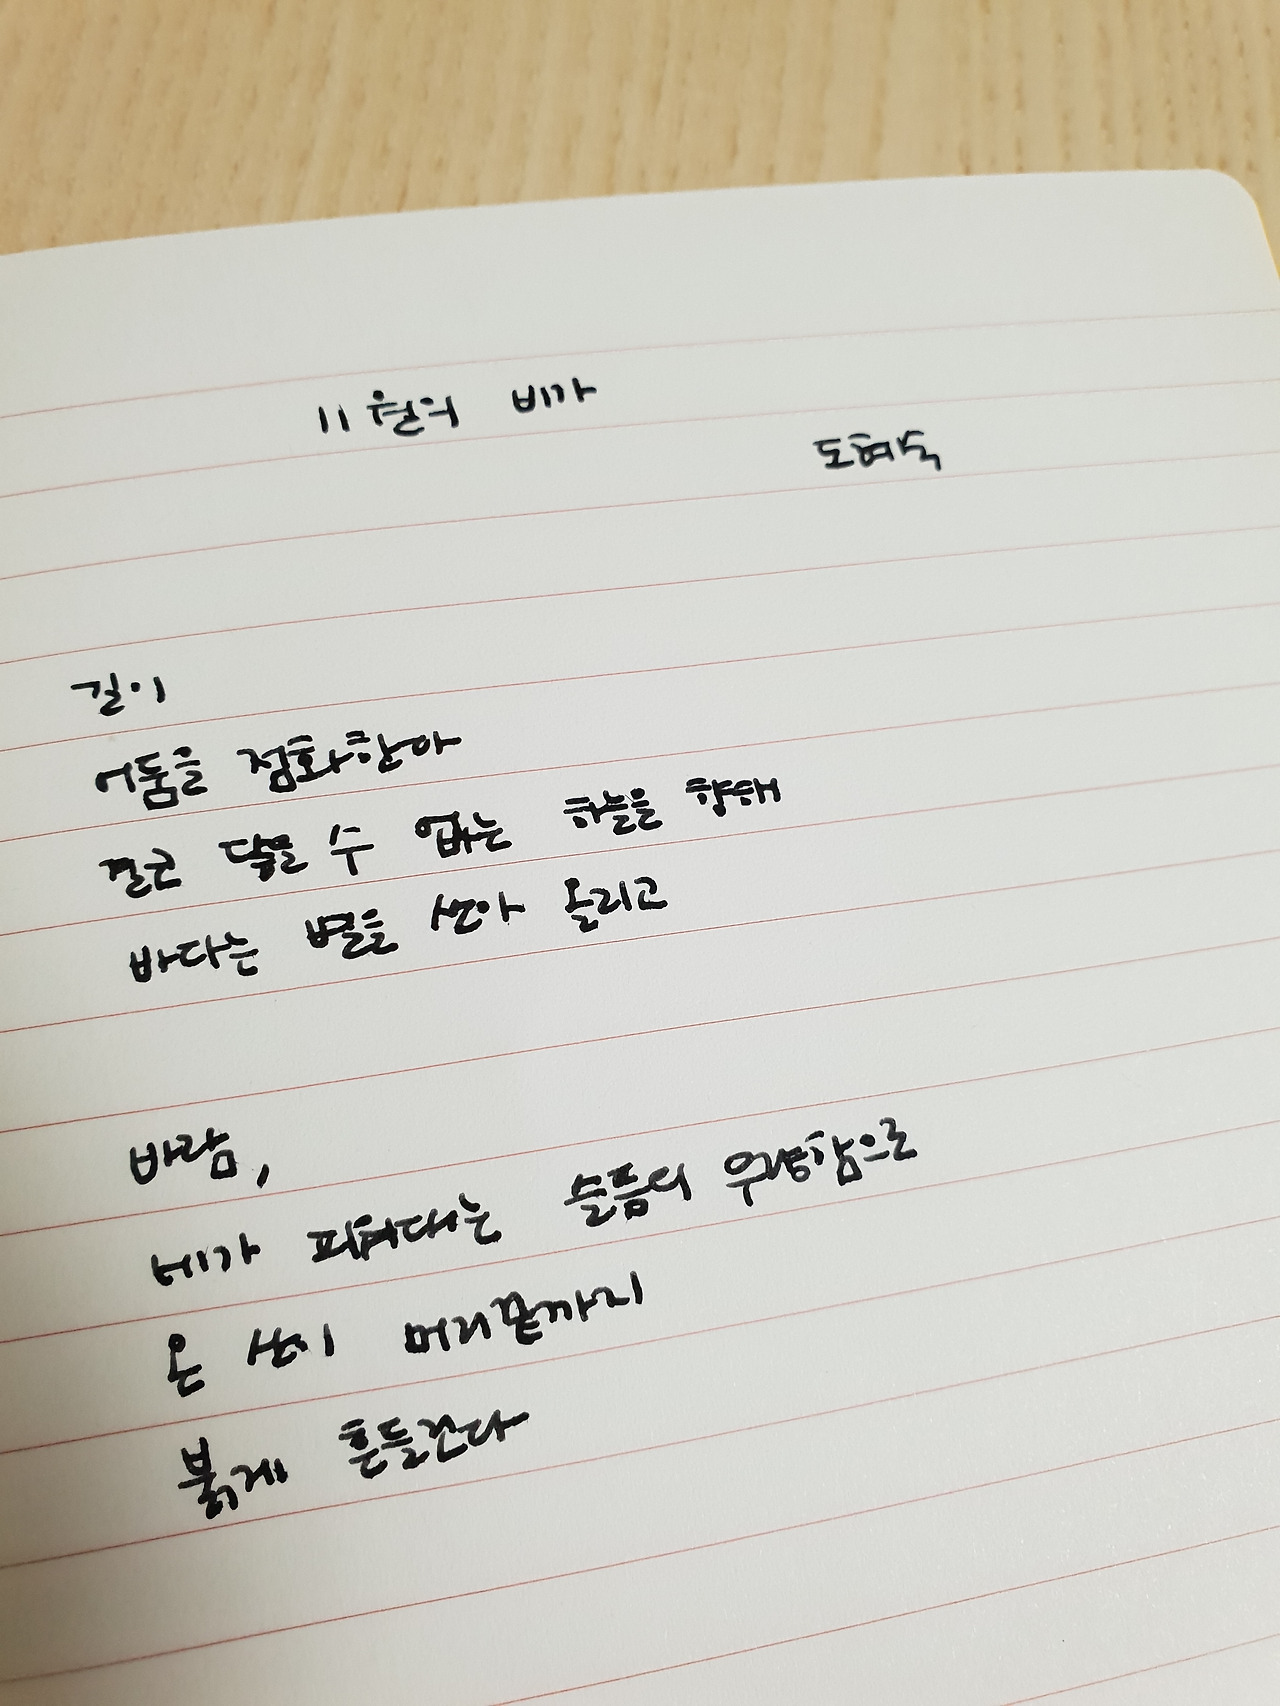 11월의 비가
도혜숙
길이
어둠을 점화한다
결코 닿을 수 없는 하늘을 향해
바다는 별을 쏘아 올리고
바람,
네가 피워대는 슬픔의 우량함으로
온 산이 머리끝까지
붉게 흔들린다